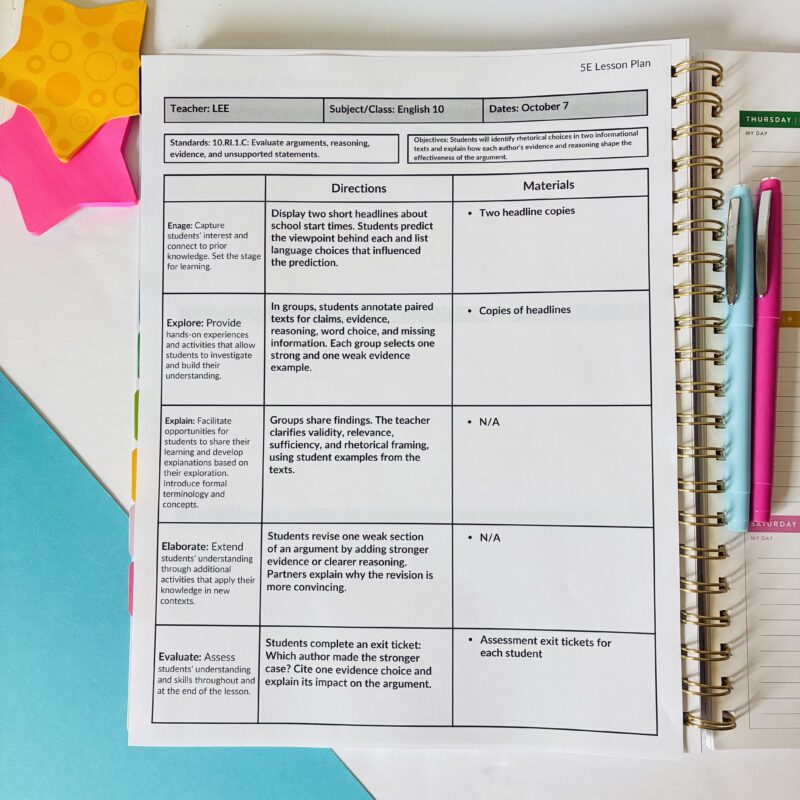 5E Lesson Plan
Teacher: LEE
Subject/Class: English 10
Dates: October 7
Standards: 10.RI.1.C: Evaluate arguments, reasoning,
evidence, and unsupported statements.
Objectives: Students will identify rhetorical choices in two informational
texts and explain how each author's evidence and reasoning shape the
effectiveness of the argument.
Directions
Materials
Enage: Capture
students' interest and
connect to prior
knowledge. Set the stage
for learning.
Display two short headlines about
school start times. Students predict
the viewpoint behind each and list
language choices that influenced
the prediction.
• Two headline copies
Explore: Provide
hands-on experiences
and activities that allow
students to investigate
and build their
understanding.
In groups, students annotate paired
texts for claims, evidence,
reasoning, word choice, and missing
information. Each group selects one
strong and one weak evidence
example.
• Copies of headlines
Explain: Facilitate
opportunities for
students to share their
learning and develop
explanations based on
their exploration.
Introduce formal
terminology and
concepts.
Groups share findings. The teacher
clarifies validity, relevance,
sufficiency, and rhetorical framing,
using student examples from the
texts.
• N/A
Elaborate: Extend
students' understanding
through additional
activities that apply their
knowledge in new
contexts.
Students revise one weak section
of an argument by adding stronger
evidence or clearer reasoning.
Partners explain why the revision is
more convincing.
• N/A
Evaluate: Assess
students' understanding
and skills throughout and
at the end of the lesson.
Students complete an exit ticket:
Which author made the stronger
case? Cite one evidence choice and
explain its impact on the argument.
• Assessment exit tickets for
each student
THURSDAY
MY DAY
9
SATURDAY
MY DAY